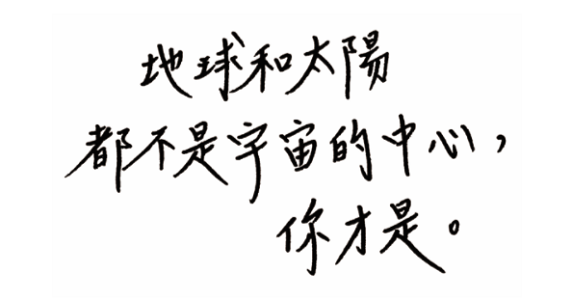 地球和太陽
都不是宇宙的中心，
你才是。